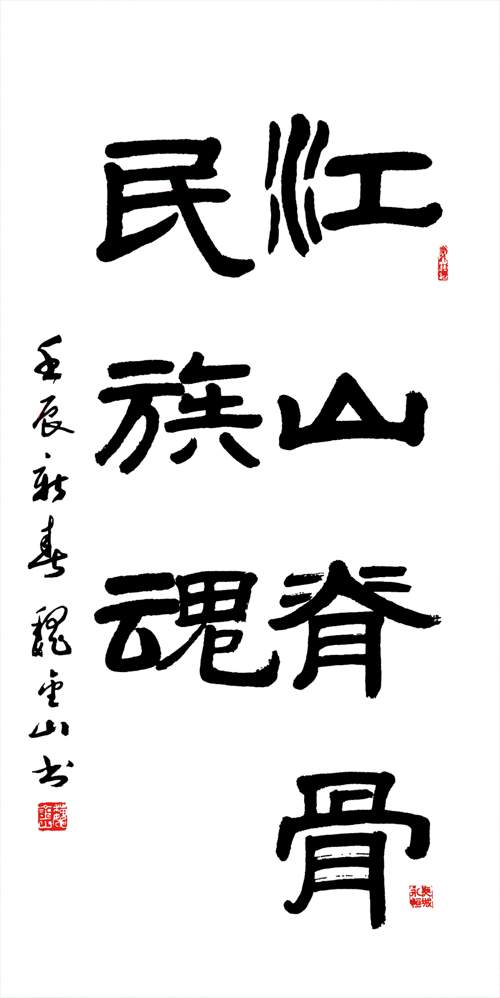 江山脊骨
民族魂
壬辰新春 魏金山书